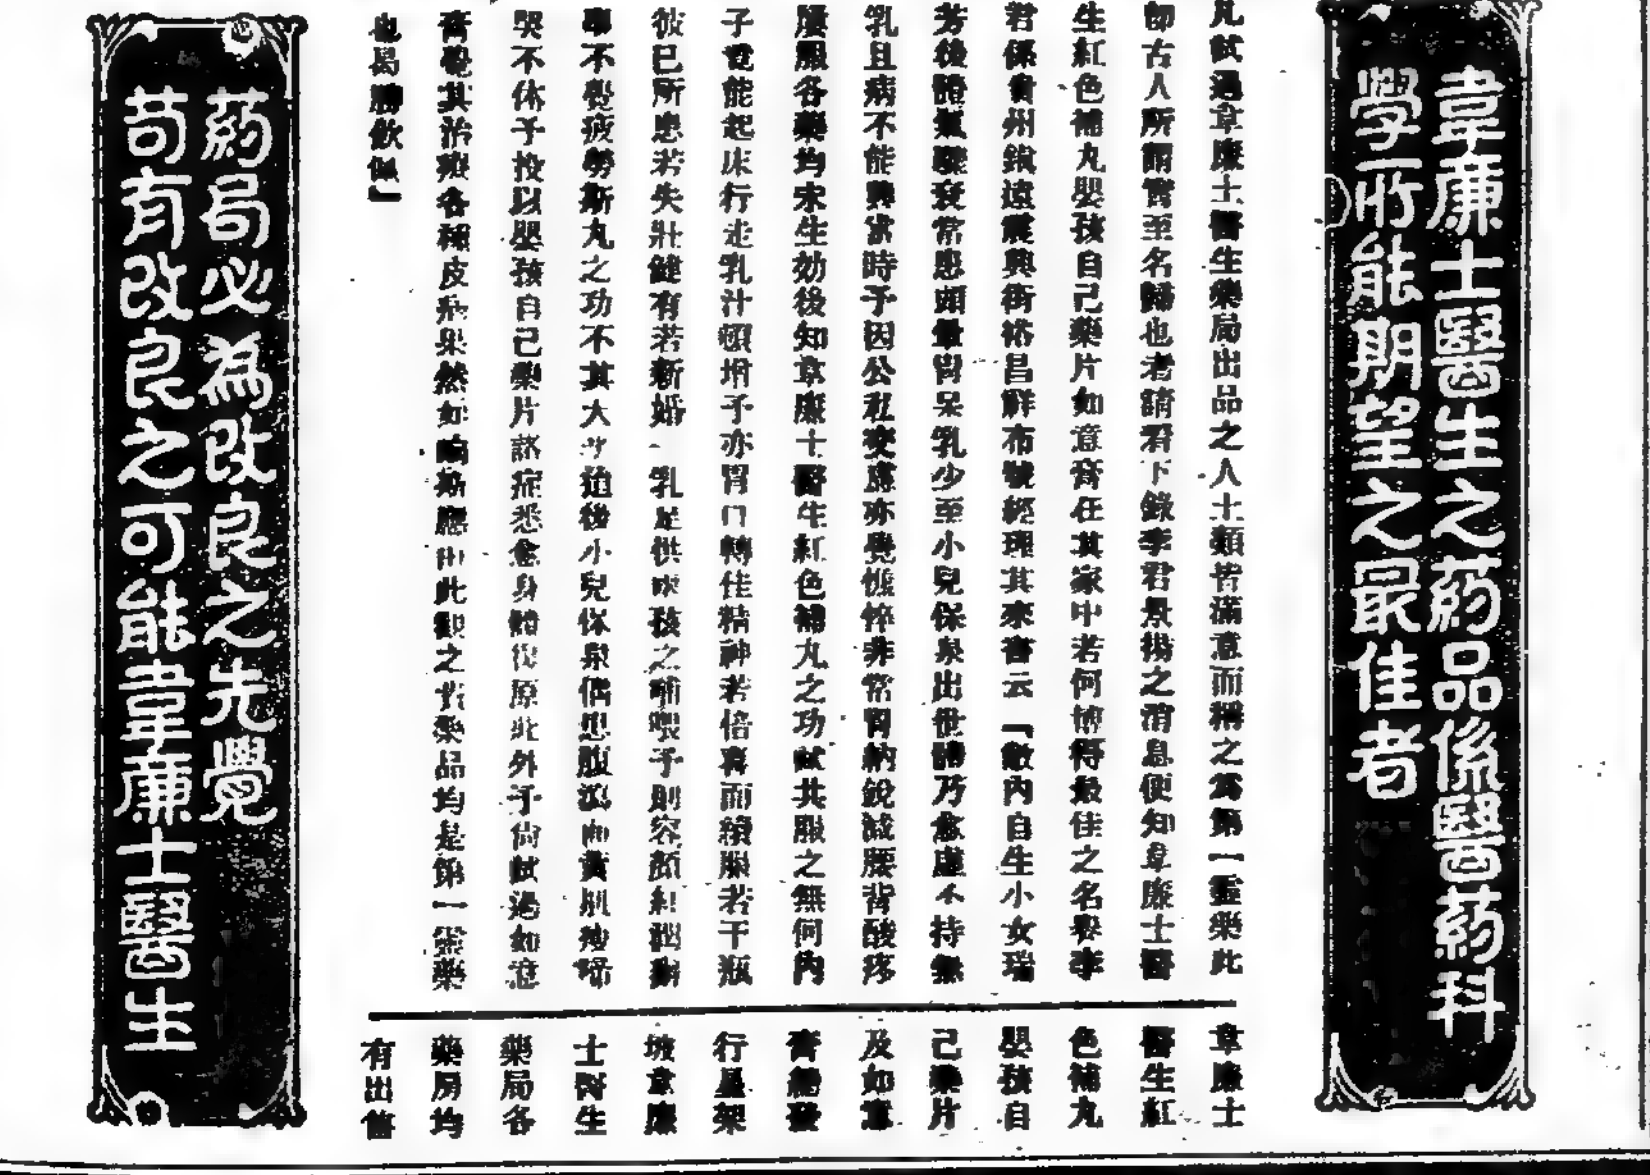 韋廉士醫生之葯品係醫葯科
學所能期望之最佳者
凡試過韋廉士醫生藥局出品之人士類皆滿意而稱之為第一靈藥此
即古人所謂實至名歸也者請看下錄李君景揚之消息便知韋廉士醫
生紅色補丸嬰孩自己藥片如意膏在其家中若何博得最佳之名譽李
君係貴州鎮遠震興街裕昌鮮布號經理其來書云「敝內自生小女瑞
芳後體氣襲衰常患頭暈胃呆乳少至小兒保泉出世體乃愈虛不持無
乳且病不能興當時予因公私交慮亦覺憔悴非常胃納銳減腰背酸疼
屢服各藥均未生効後知韋廉士醫生紅色補丸之功試共服之無何內
子竟能起床行走乳汁頓增予亦胃口轉佳精神若倍喜而續服若干瓶
彼已所患若失壯健有若新婚 乳足供嬰孩之哺喂予則容顏紅潤辦
事不覺疲勞斯丸之功不其大乎迨後小兒保泉偶患腹瀉面黃肌瘦啼
哭不休予投以嬰孩自己藥片諸症悉愈身體復原此外予尙試過如意
膏覺其治療各種皮病果然如响斯應由此觀之貴藥品均是第一靈藥
也曷勝欽佩」
韋廉士
醫生紅
色補丸
嬰孩自
己藥片
及如意
膏總發
行星架
坡韋廉
士醫生
藥局各
藥房均
有出售
葯局必為改良之先覺
苟有改良之可能韋廉士醫生